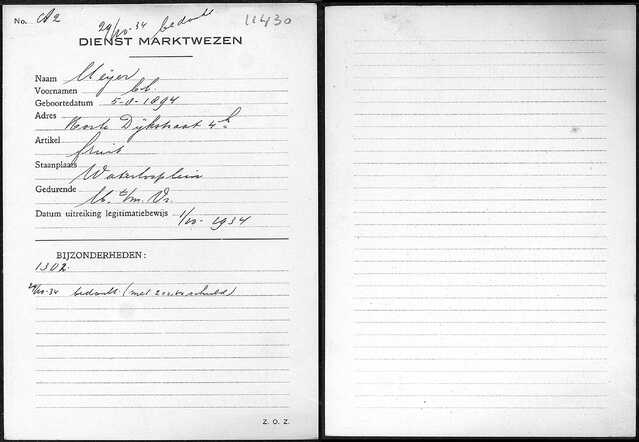 No. A2 29/10-34 bedankt 11430
DIENST MARKTWEZEN
Naam Meijer
Voornamen
Geboortedatum 5-8-1894
Adres
Korte Dijkstraat 4
Artikel
fruit
Staanplaats
Waterlooplein
Gedurende
M. t/m. Vr.
Datum uitreiking legitimatiebewijs 1/10-1934
BIJZONDERHEDEN:
1302
29/10-34 bedankt (met schuld)
Z. O. Z.